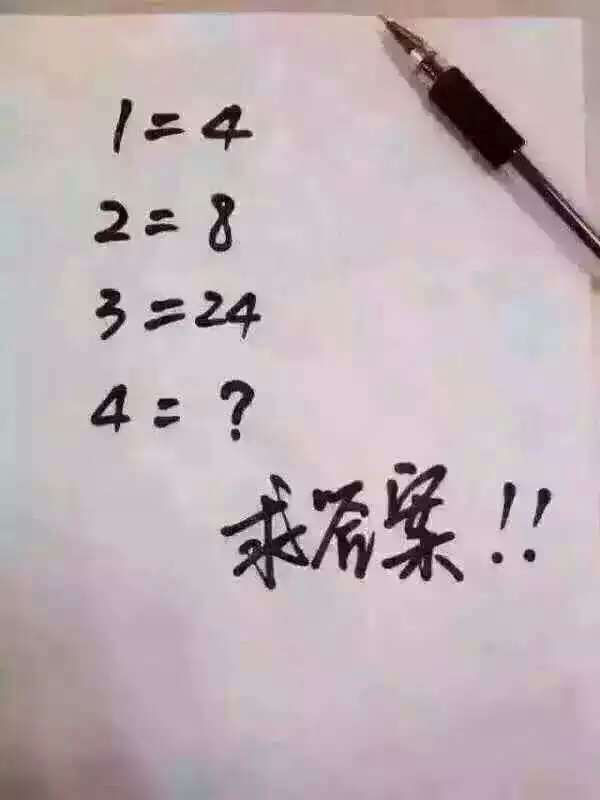 1=4
2=8
3=24
4=?
求答案!!